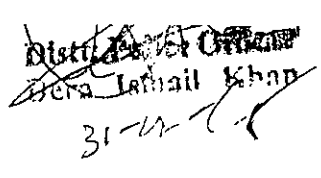 Distt: Police Officer
Dera Ismail Khan
31-12-